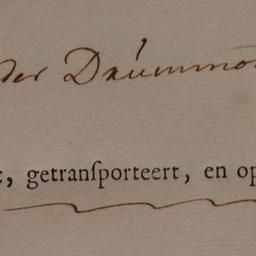 der Drúmmo
, getranſporteert, en op